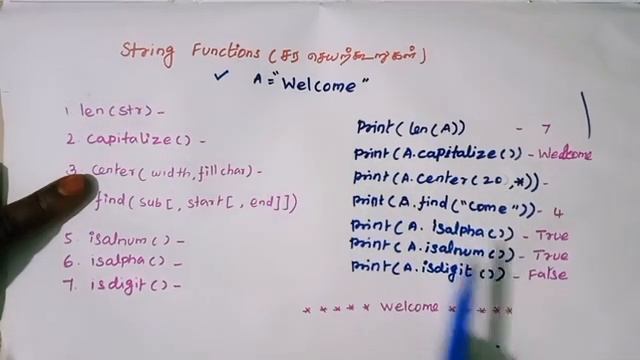 String Functions (சர செயற்கூறுகள்)
✓ A = "Welcome"
1. len(str) -
2. capitalize() -
3. center(width, fillchar) -
find(sub[, start[, end]])
5. isalnum() -
6. isalpha() -
7. isdigit() -
print(len(A)) - 7
print(A.capitalize()) - Welcome
print(A.center(20,*)) -
print(A.find("come")) - 4
print(A.isalpha()) - True
print(A.isalnum()) - True
print(A.isdigit()) - False
* * * * * Welcome * * * * *